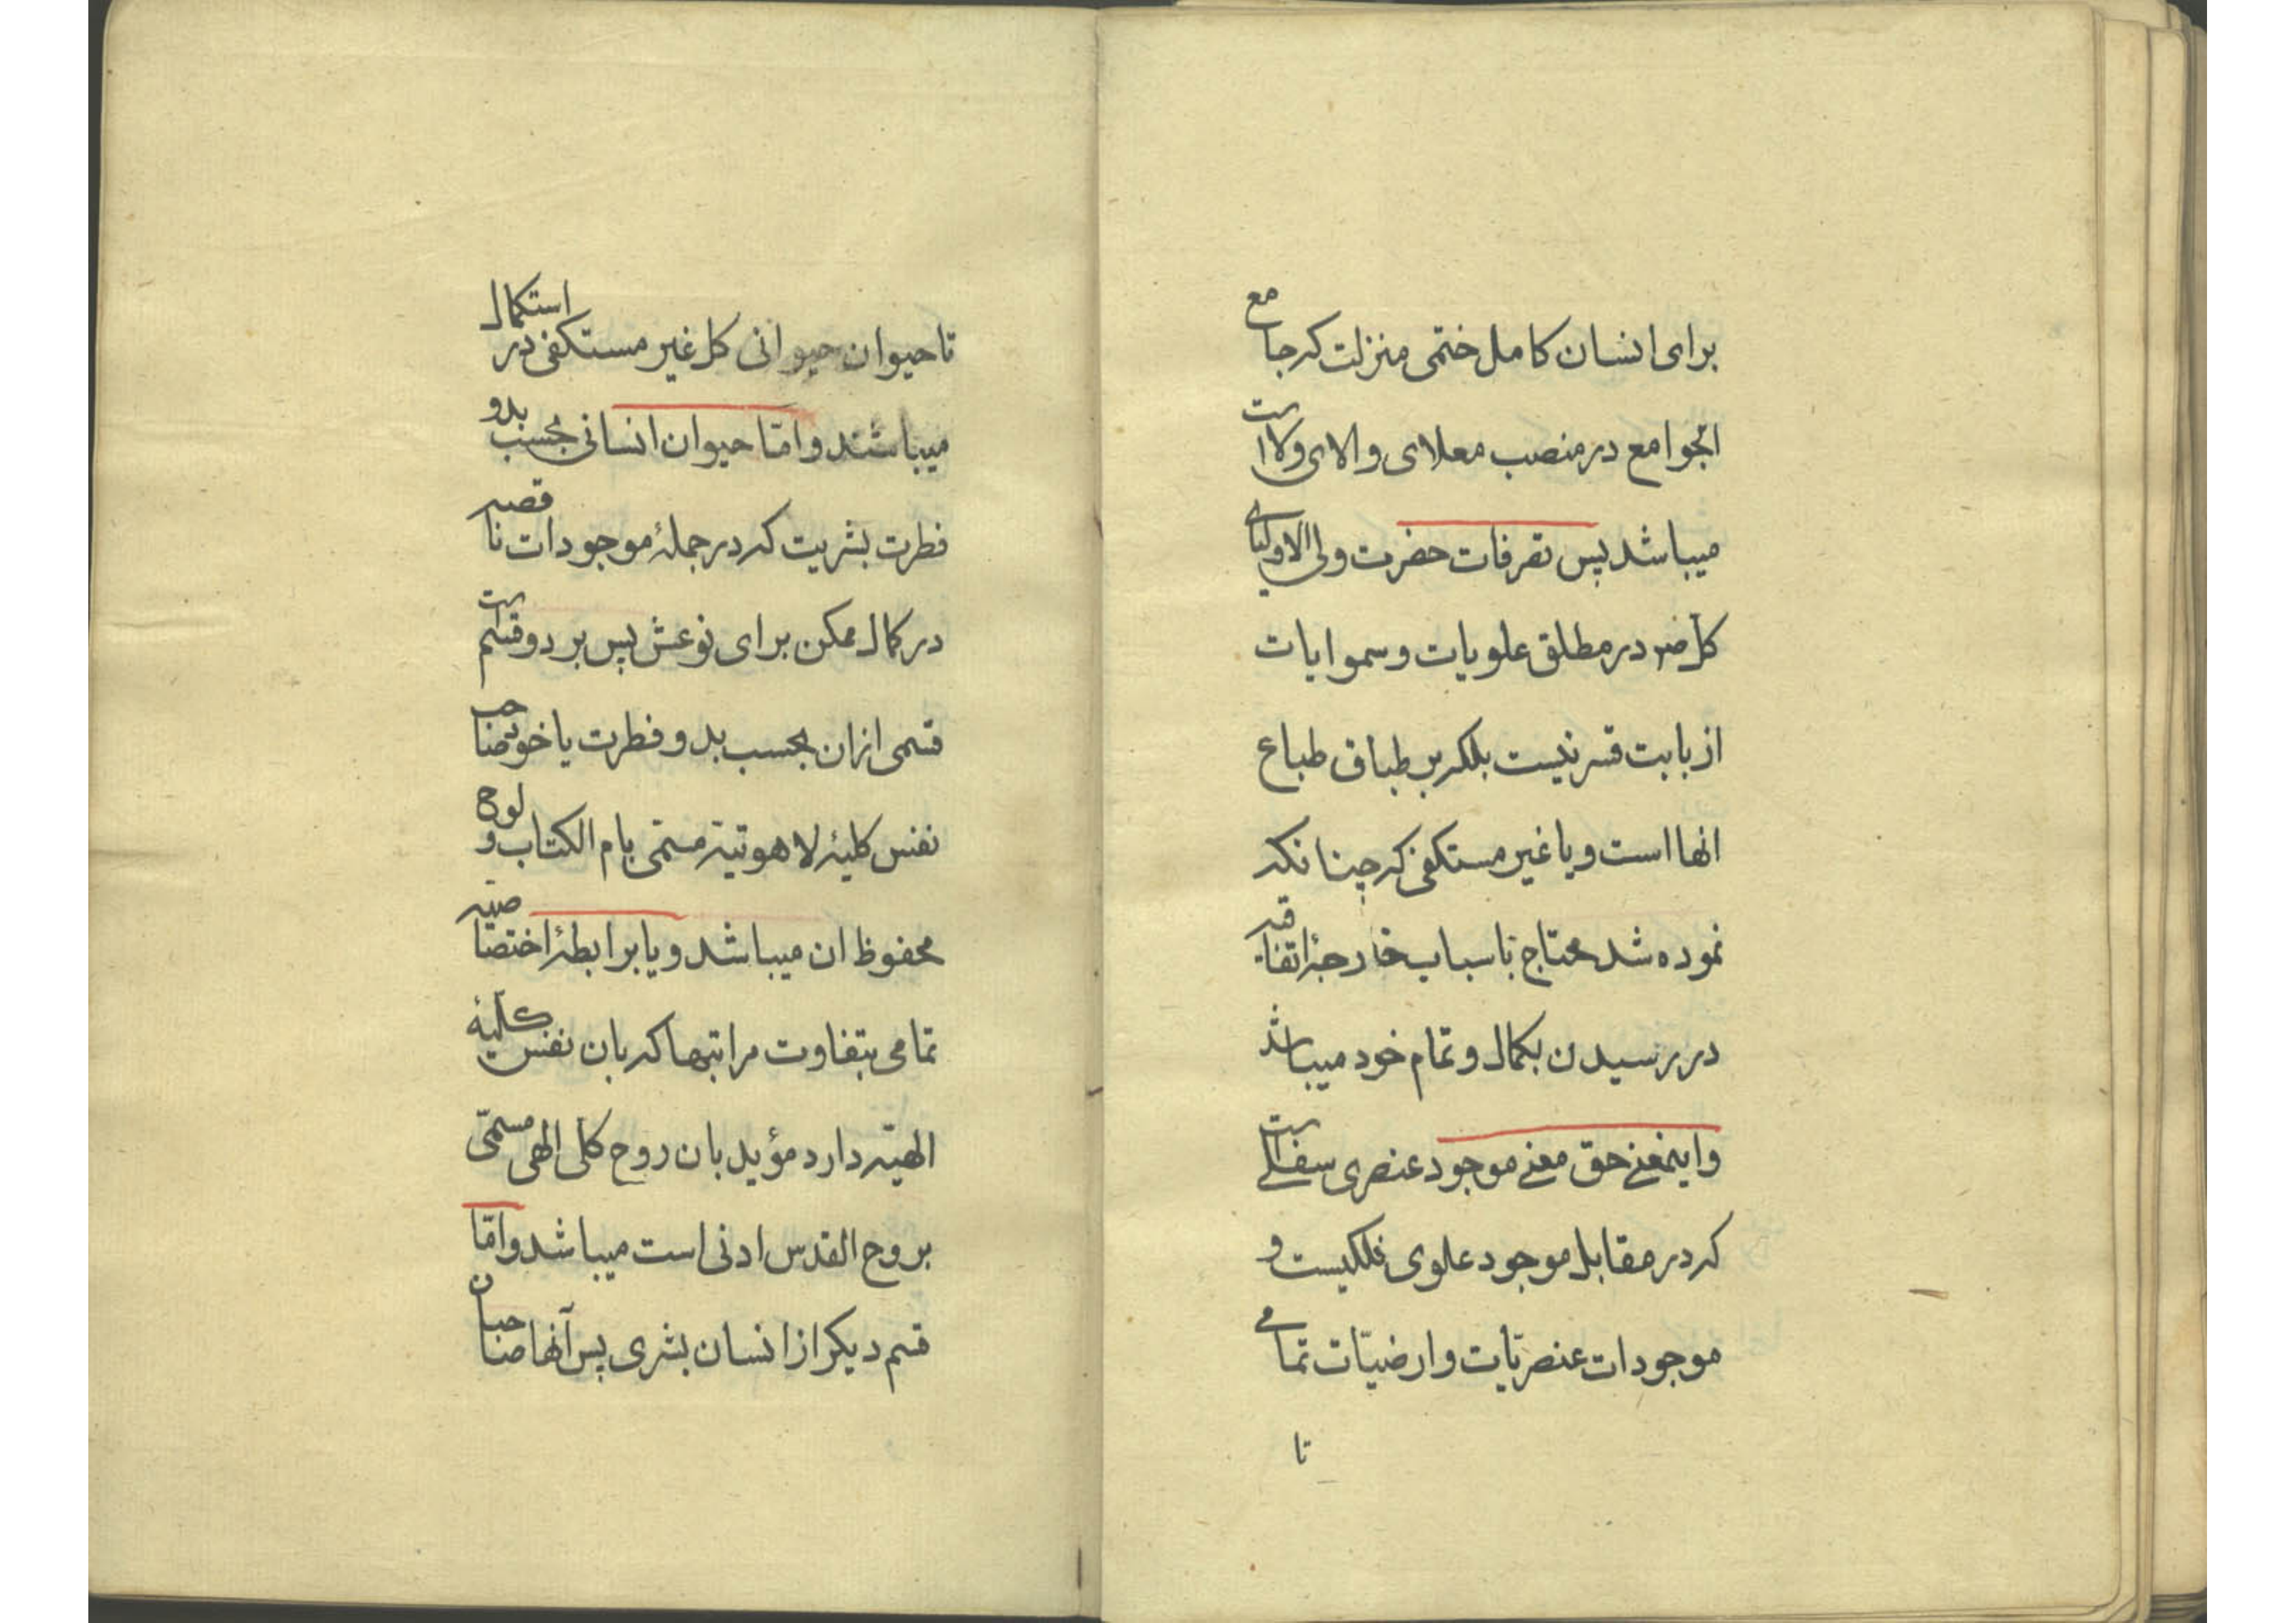 برای انسان کامل ختمی منزلت که جامع
الجوامع در منصب معلای والای ولا است
میباشد پس تصرفات حضرت ولی الاولیائی
کل ص در مطلق علویات و سموایات
از بابت قسر نیست بلکه بر طباق طباع
انها است و یا غیر مستکفی که چنانکه
نموده شد محتاج باسباب خارجۀ اتفاقیه
در رسیدن بکمال و تمام خود میباشد
و اینمعنے حق معنے موجود عنصری سفلے است
که در مقابل موجود علوی فلکیست و
موجودات عنصریات و ارضیّات تمامے
تا
تا حیوان حیوانی کل غیر مستکفی در استکمال
میباشند و امّا حیوان انسانی بحسب بدو
فطرت بشریت که در جملۀ موجودات ناقصه
در کمال ممکن برای نوعش پس بر دو قسم است
قسمی ازان بحسب بدو فطرت یا خود صاحب
نفس کلیۀ لاهوتیه مسمّی بام الکتاب و لوح
محفوظ ان میباشد و یا برابطۀ اختصاصیّه
تمامی بتفاوت مراتبها که بان نفس کلّیۀ
الهیّه دارد مؤید بان روح کلی الهی مسمّی
بروح القدس ادنی است میباشد و امّا
قسم دیکر از انسان بشری پس آنها صاحبان